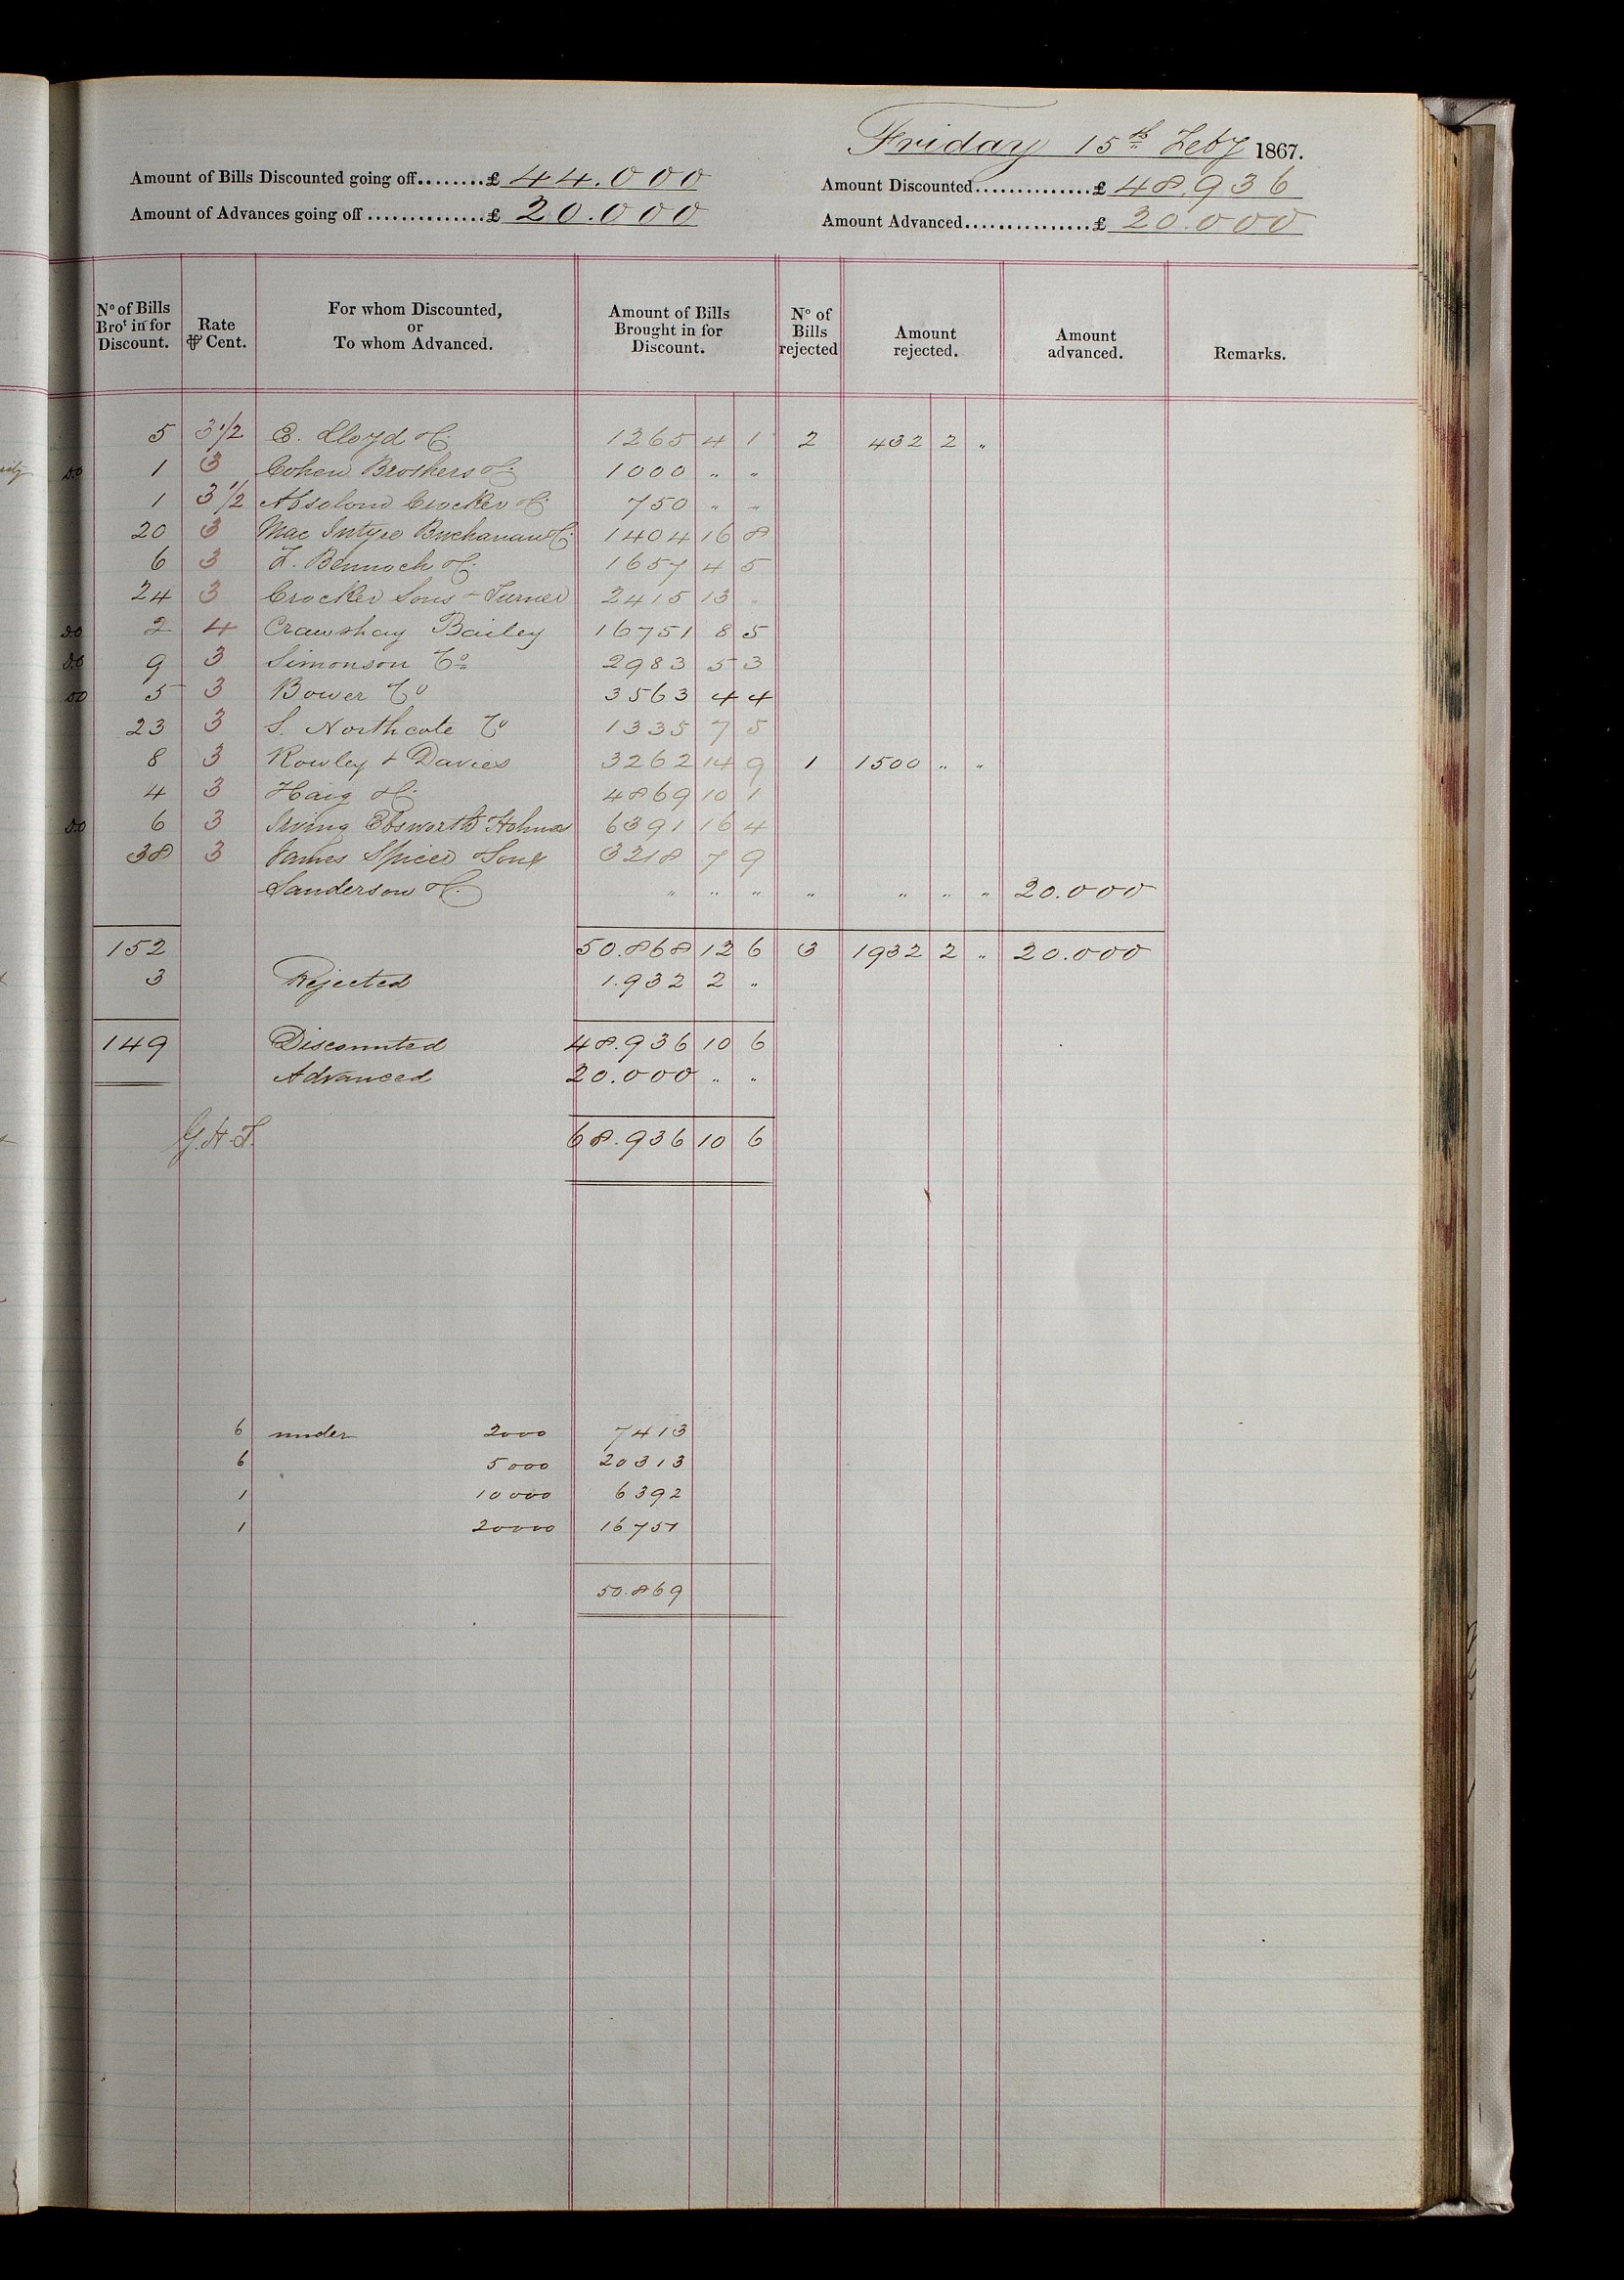 Friday 15th Feby 1867.
Amount of Bills Discounted going off........£ 44.000 Amount Discounted...............£ 48.936
Amount of Advances going off...............£ 20.000 Amount Advanced................£ 20.000
No of Bills Brot in for Discount. Rate ⅌ Cent. For whom Discounted, or To whom Advanced. Amount of Bills Brought in for Discount. No of Bills rejected Amount rejected. Amount advanced. Remarks.
5 3 1/2 E. Lloyd & C. 1265 4 1 2 432 2 "
Do 1 3 Cohen Brothers & C. 1000 " "
1 3 1/2 Absolom Crocker & C. 750 " "
20 3 Mac Intyre Buchanan & C. 1404 16 8
6 3 F. Bennoch & C. 1657 4 5
24 3 Crocker Sons & Turner 2415 13 "
Do 2 4 Crawshay Bailey 16751 8 5
Do 9 3 Simonson Co 2983 5 3
Do 5 3 Bower Co 3563 4 4
23 3 S. Northcote Co 1335 7 5
8 3 Rowley & Davies 3262 14 9 1 1500 " "
4 3 Haig & C. 4869 10 1
Do 6 3 Irving Ebsworth & Holmes 6391 16 4
38 3 James Spicer & Sons 3218 7 9
Sanderson & C. " " " " " " " 20.000
152 50.868 12 6 3 1932 2 " 20.000
3 Rejected 1.932 2 "
149 Discounted 48.936 10 6
Advanced 20.000 " "
G.H.T. 68.936 10 6
6 under 2000 7413
6 5000 20313
1 10000 6392
1 20000 16751
50.869